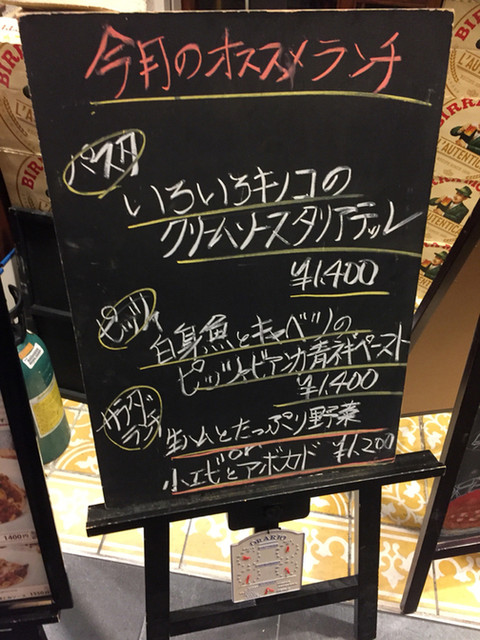 今月のオススメランチ
パスタ
いろいろキノコの
クリームソースタリアテッレ
¥1,400
ピッツァ
白身魚とキャベツの
ピッツァビアンカ青祥ペースト
¥1,400
サラダ
ランチ
生ハムとたっぷり野菜
or
小エビとアボカド ¥1,200
ORARIO
1400円
BIRRA
L'AUTENTICA